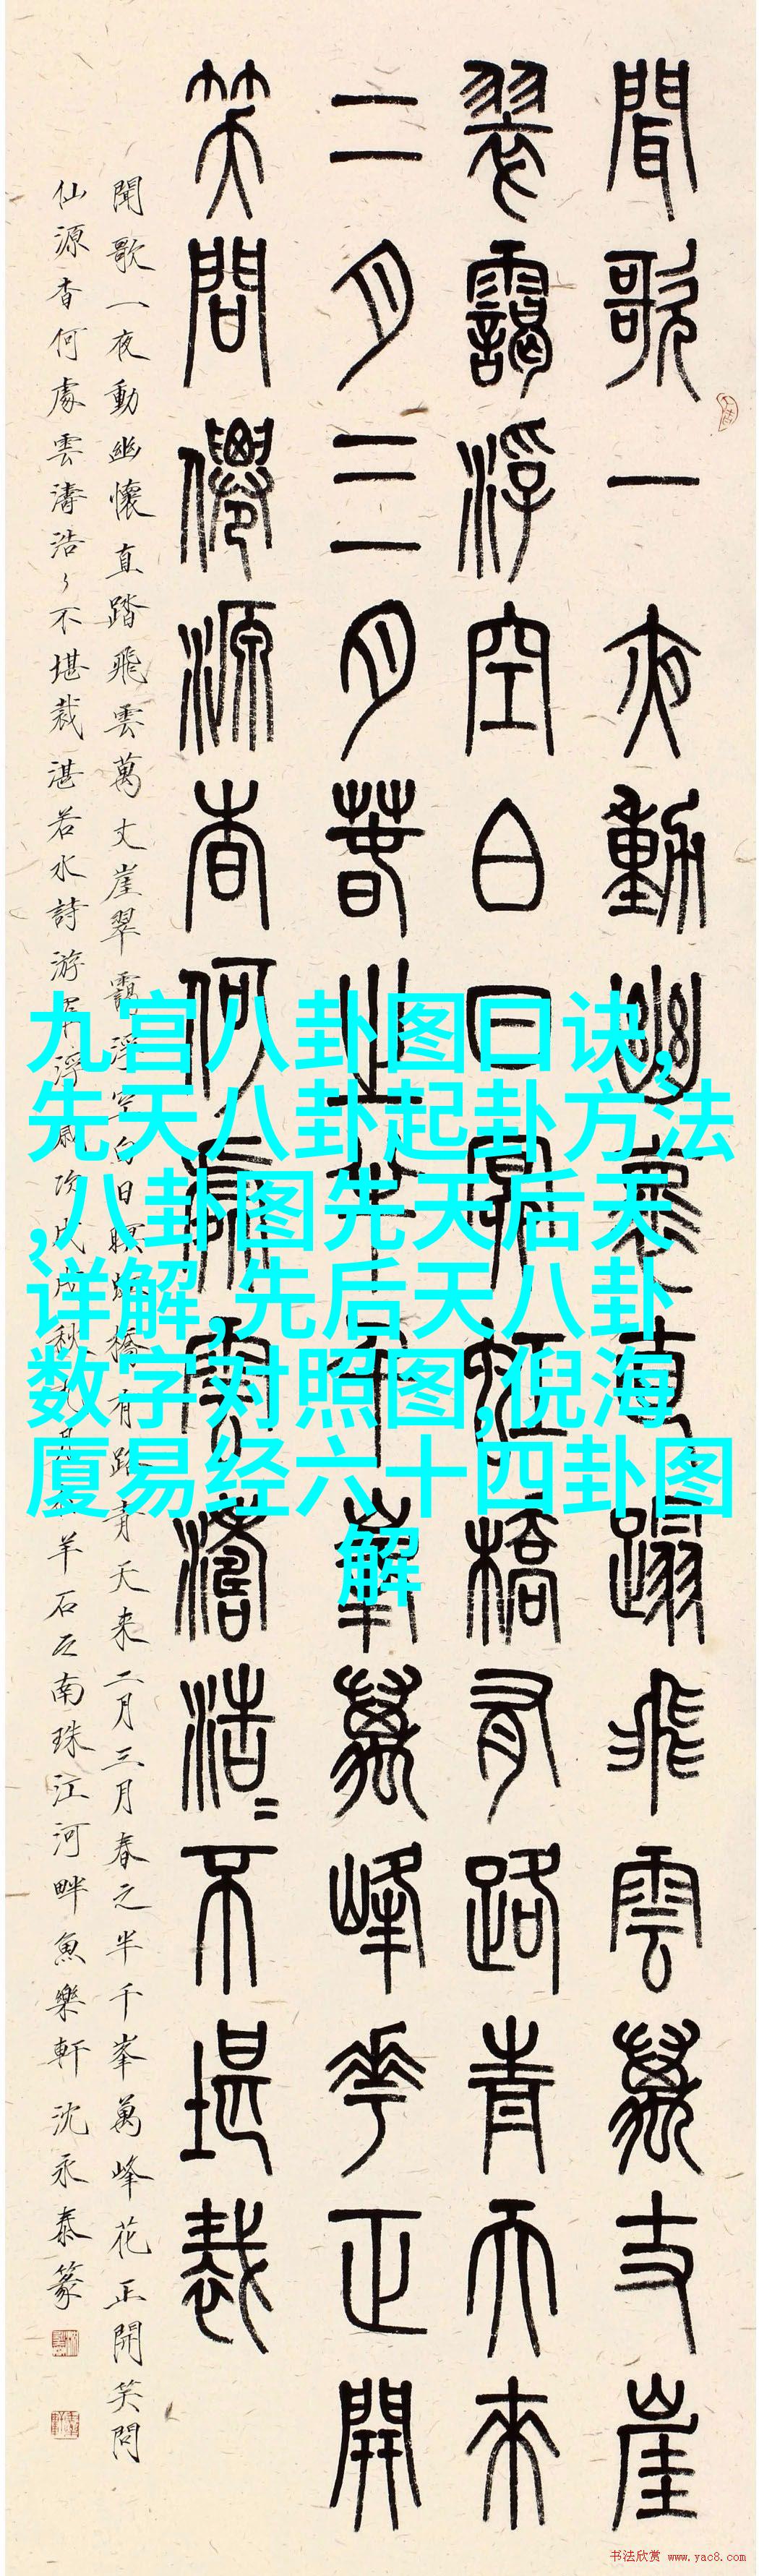 聞歌一夜動幽懷直蹋飛雲萬丈崖
翠靄浮空白日瞑虹橋有路青天來
二月三月春之半千峯萬峰花正開
笑問僊源杳何處雲濤浩〻不堪裁
聞歌一夜動幽懷直踏飛雲萬丈崖翠靄浮空白日瞑橋有路青天来二月三月春之半千峯萬峰花正開笑問
仙源杳何處雲濤浩〻不堪裁湛若水詩游浮歲次戊戌秋九月羊石之南珠江河畔魚樂軒沈永泰篆
九宫八卦图口诀,
先天八卦起卦方法
,八卦图先天后天
详解,先后天八卦
数字对照图,倪海
厦易经六十四卦图
解
书法欣赏 www.yac8.com